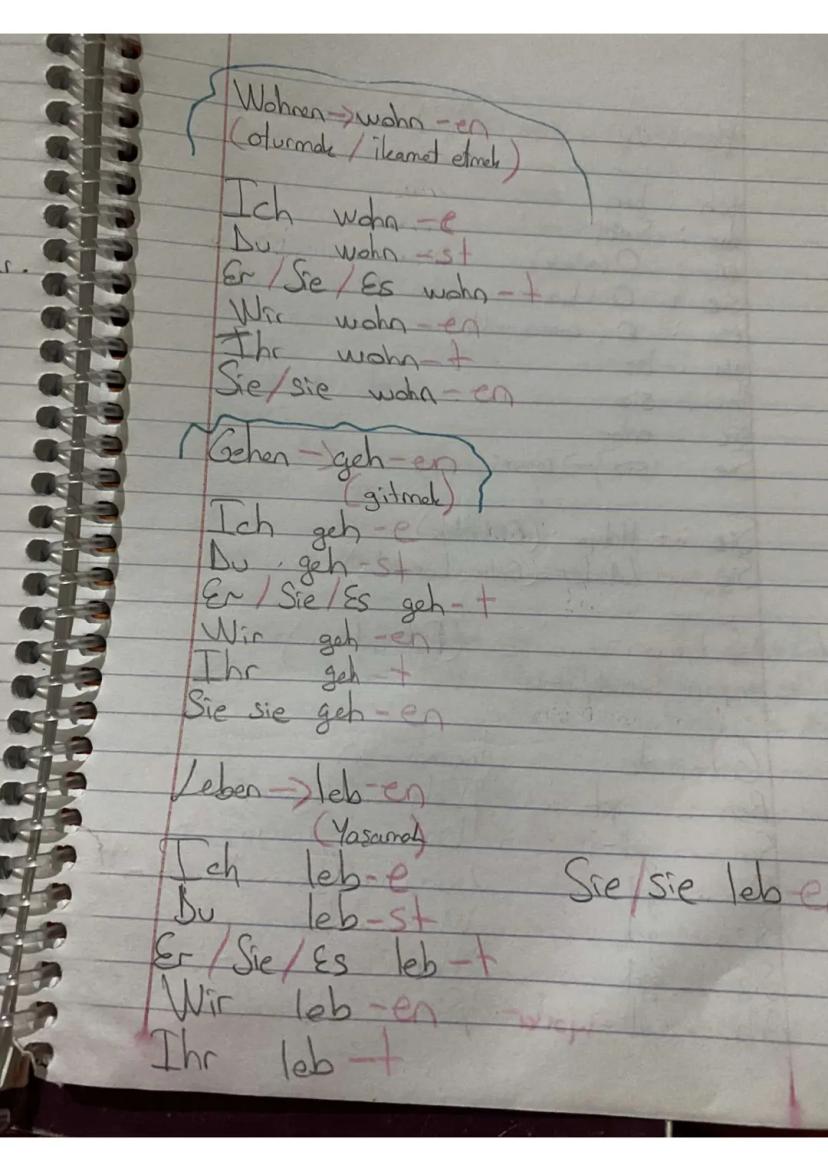 s.
Wohnen→wohn-en
(oturmak / ikamet etmek)
Ich wohn-e
Du wohn-st
Er/Sie/Es wohn-t
Wir wohn-en
Ihr wohn-t
Sie/sie wohn-en
Gehen→geh-en
(gitmek)
Ich geh-e
Du geh-st
Er/Sie/Es geh-t
Wir geh-en
Ihr geh-t
Sie sie geh-en
Leben→leb-en
(Yaşamak)
Ich leb-e
Du leb-st
Er/Sie/Es leb-t
Wir leb-en
Ihr leb-t
Sie/sie leb e